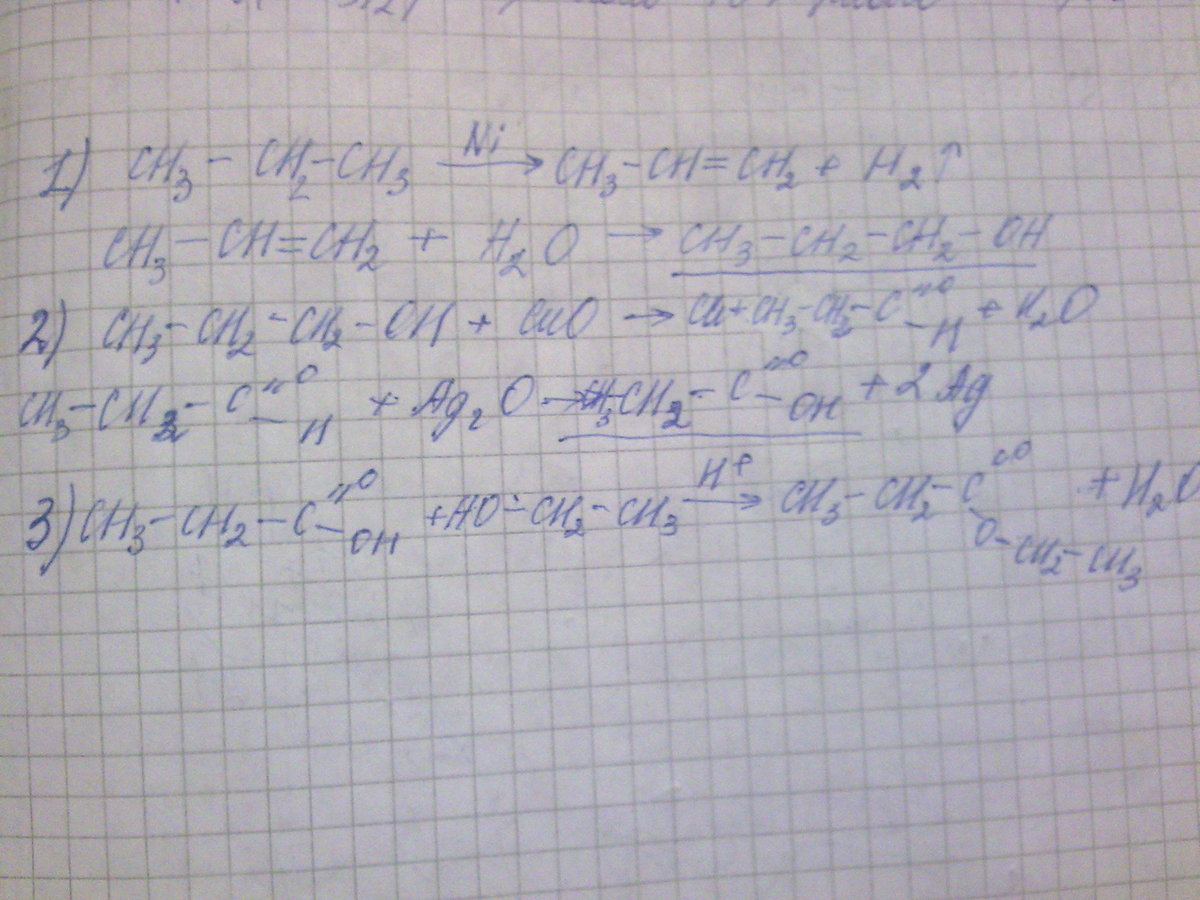 1) CH3 - CH2 - CH3 Ni → CH3 - CH = CH2 + H2↑
CH3 - CH = CH2 + H2O → CH3 - CH2 - CH2 - OH
2) CH3 - CH2 - CH2 - OH + CuO → Cu + CH3 - CH2 - C =O - H + H2O
CH3 - CH2 - C =O - H + Ag2O → CH3 CH2 - C =O - OH + 2Ag
3) CH3 - CH2 - C =O - OH + HO - CH2 - CH3 H+ → CH3 - CH2 - C =O O - CH2 - CH3 + H2O